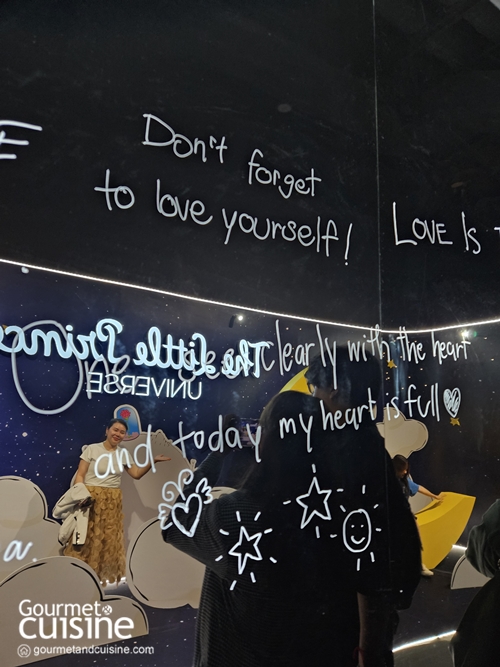 E
Don't forget
to love yourself!
LOVE IS
The Little Prince
UNIVERSE
clearly with the heart
and today my heart is full
a.
Gourmet &
CUISINE
gourmetandcuisine.com